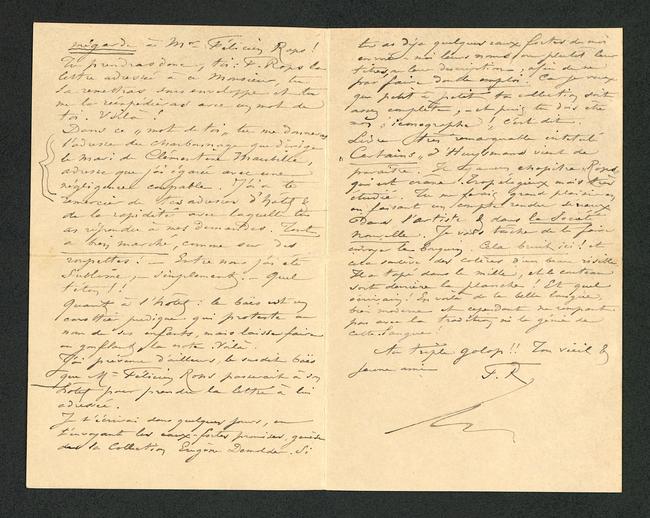 mégarde à Mr Félicien Rops !
Tu prendras donc, toi : F. Rops la
lettre adressée à ce Monsieur, tu
la remettras sous enveloppe et tu
me la réexpédieras avec un mot de
toi. Voilà !
Dans ce « mot de toi », tu me donneras
l'adresse du charbonnage que dirige
le mari de Clémentine
adresse que j'ai égarée avec une
négligence coupable. J'ai à te
remercier de tes adresses d'hôtel &
de la rapidité avec laquelle tu
as répondu à mes demandes. Tout
a bien marché, comme sur des
roupettes ! — Entre nous j'ai été
Sublime, — simplement. — Quel
!!
Quant à l'hôtel : le bais est un
pudique, qui proteste au
nom de ses enfants, mais laisse faire
en gonflant la note. Voilà.
J'ai prévenu d'ailleurs, le susdit bais
que Mr Félicien Rops passerait à son
hôtel pour prendre la lettre à lui
adressée.
Je t'écrirai dans quelques jours, en
t'envoyant les eaux-fortes promises,
de la Collection Eugène Demolder. Si
tu as déjà quelques eaux fortes de moi
envoie-moi leurs noms, ou plutôt leur
titres, ou leur description, afin de ne
pas faire double emploi ! Car je veux
que petit à petit ta collection soit
assez complète, — et puis tu dois être
mon iconographe ! c'est dit.
Livre très remarquable intitulé
« Certains », d'Huysmans vient de
paraître. Il y a un chapitre Rops
qui est crâne. Élogieux mais très
étudié. Tu me feras grand plaisir en
en faisant un compte rendu sérieux
Dans l'artiste & dans la Société
nouvelle. Je vais tâcher de te faire
envoyer le bouquin. Cela bruit ici ! et
cela soulève des colères d'un beau
Il a tapé dans le mille, et le couteau
sort derrière la planche ! Et quel
écrivain ! En voilà de la belle langue,
bien moderne et cependant ne rompant
pas avec la tradition, ni le génie de
cette langue !
Au triple galop !! Ton vieil &
jeune ami
F. R